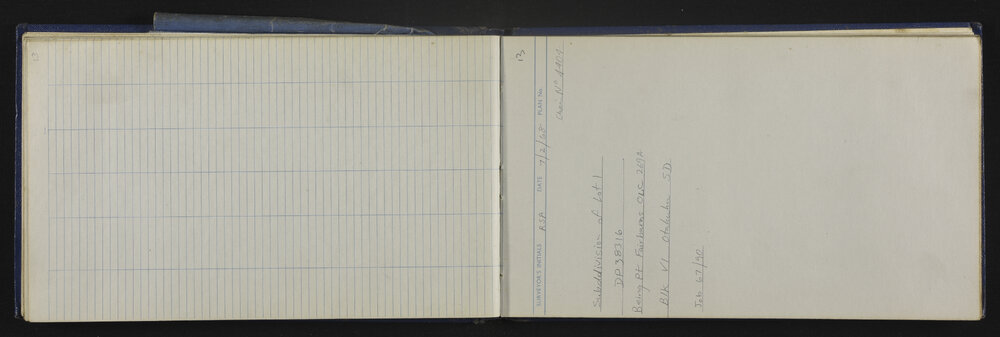 13
13
SURVEYOR'S INITIALS RSA DATE 7/2/68 PLAN No.
Chain No 4404
Subdivision of Lot 1
DP 38316
Being Pt Fairburns OLC 269A
Blk VI Otahuhu SD
Job 67/90